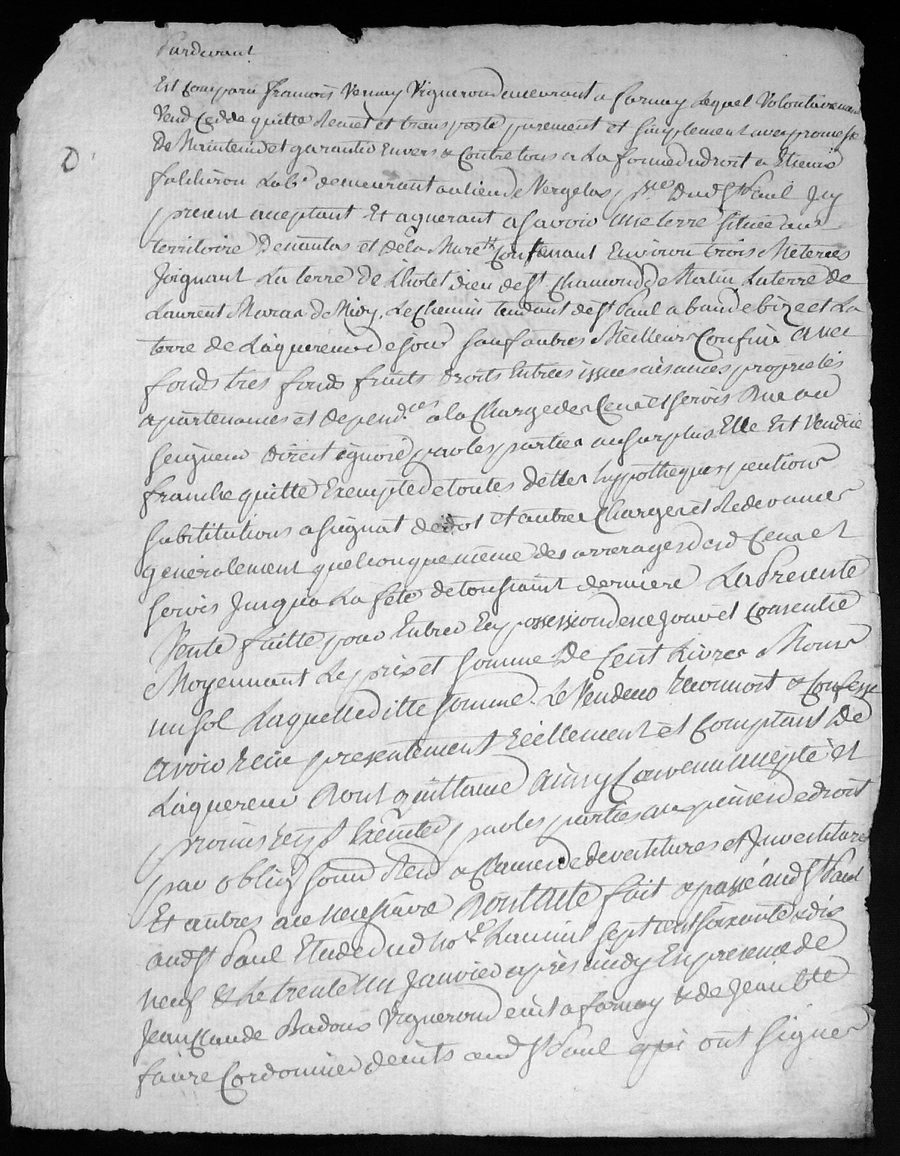 Pardevant
Est comparu francois Vernay Vigneron demeurant a farnay Lequel Volontairement
Vend Cedde quitte Remet et transporte purement et simplement avec promesse
De Maintenir et garantir Envers & Contre tous a La forme du droit a Etienne
falchiron Lab.r demeurant au lieu de Vergelas p.sse Dud St Paul Icy
present aceptant Et aquerant asavoir une terre située au
territoire De et dela Contenant Environ trois Meterées
Joignant La terre de Lhotel dieu de St Chamond De Matin La terre de
Laurent De Midy, Le Chemin tendant de St Paul a de bize et La
terre de Laquereur de soir sauf autres Meilleurs Confins avec
fonds tres fonds fruits droits Entrées issues aisances proprietés
apartenances et depend.ces a la Charge des Cens et servis Due au
seigneur Direct ignoré par les parties au surplus Elle Est Vendüe
franche quitte Exempte de toutes dettes hypotheques pentions
substitutions asignat de dot et autres Charges et Redevances
généralement quelconque même des arrerages desd Cens et
servis Jusqua La fête de toussaint derniere La Presente
Vente faitte pour Entrer En possession des ce jour et
Moyennant Le prix et somme De Cent Livres
un sol Laquelleditte somme Le Vendeur reconnoit & Confesse
avoir reçu presentement réellement et Comptant De
Laquereur Dont quittance ainsy Convenu accepté et
promis Executer par les parties aux peines de droit
par oblig.
Et autres au necessaire Dont acte fait & passé aud St Paul
aud St Paul Etude dud no.re Lan mil sept cent soixante & dix
neuf & Le trente un Janvier après midy En presence de
Jean Claude Badoux Vigneron du lieu farnay & de
faure Cordonnier aud St Paul qui ont signer